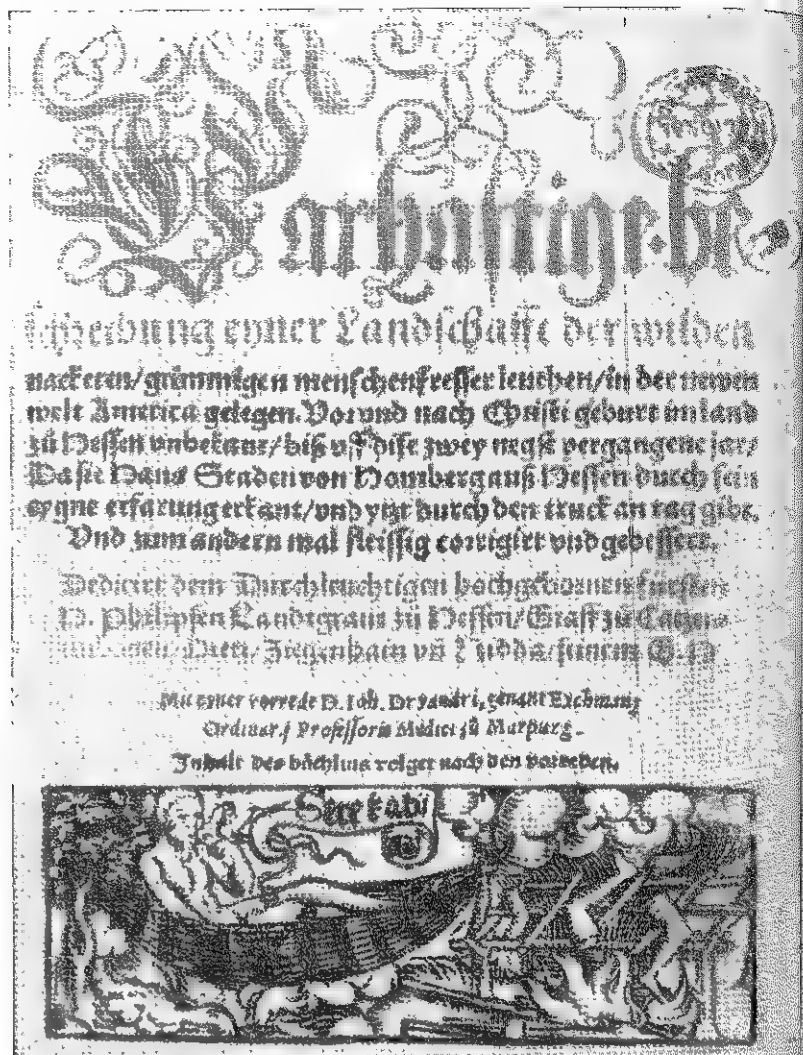 Warhafftige be
schreibung eyner Landtschafft der wilden
nacketen/grimmigen menschenfresser leuthen/in der newen
welt America gelegen. Vor und nach Christi geburt im land
zů Hessen vnbekant/biß vff dise zwey negst vergangene jar/
Da sie Hans Staden von Homberg auß Hessen durch sein
eygne erfarung erkant/vnd ytzt durch den truck an tag gibt.
Vnd zum andern mal fleissig corrigiert vnd gebessert.
Dedicirt dem Durchleuchtigen hochgebornen fursten
H. Philipsen Landtgraue zů Hessen/Graff zů Catzen-
Dietz/Ziegenhain vň Nidda/seinem G. H.
Mit eyner vorrede D. Joh. Dryandri, genant Eychman;
Ordinarij Professoris Medici zů Marpurg.
Inhalt des bůchlins volget nach den vorreden.
Sete kati